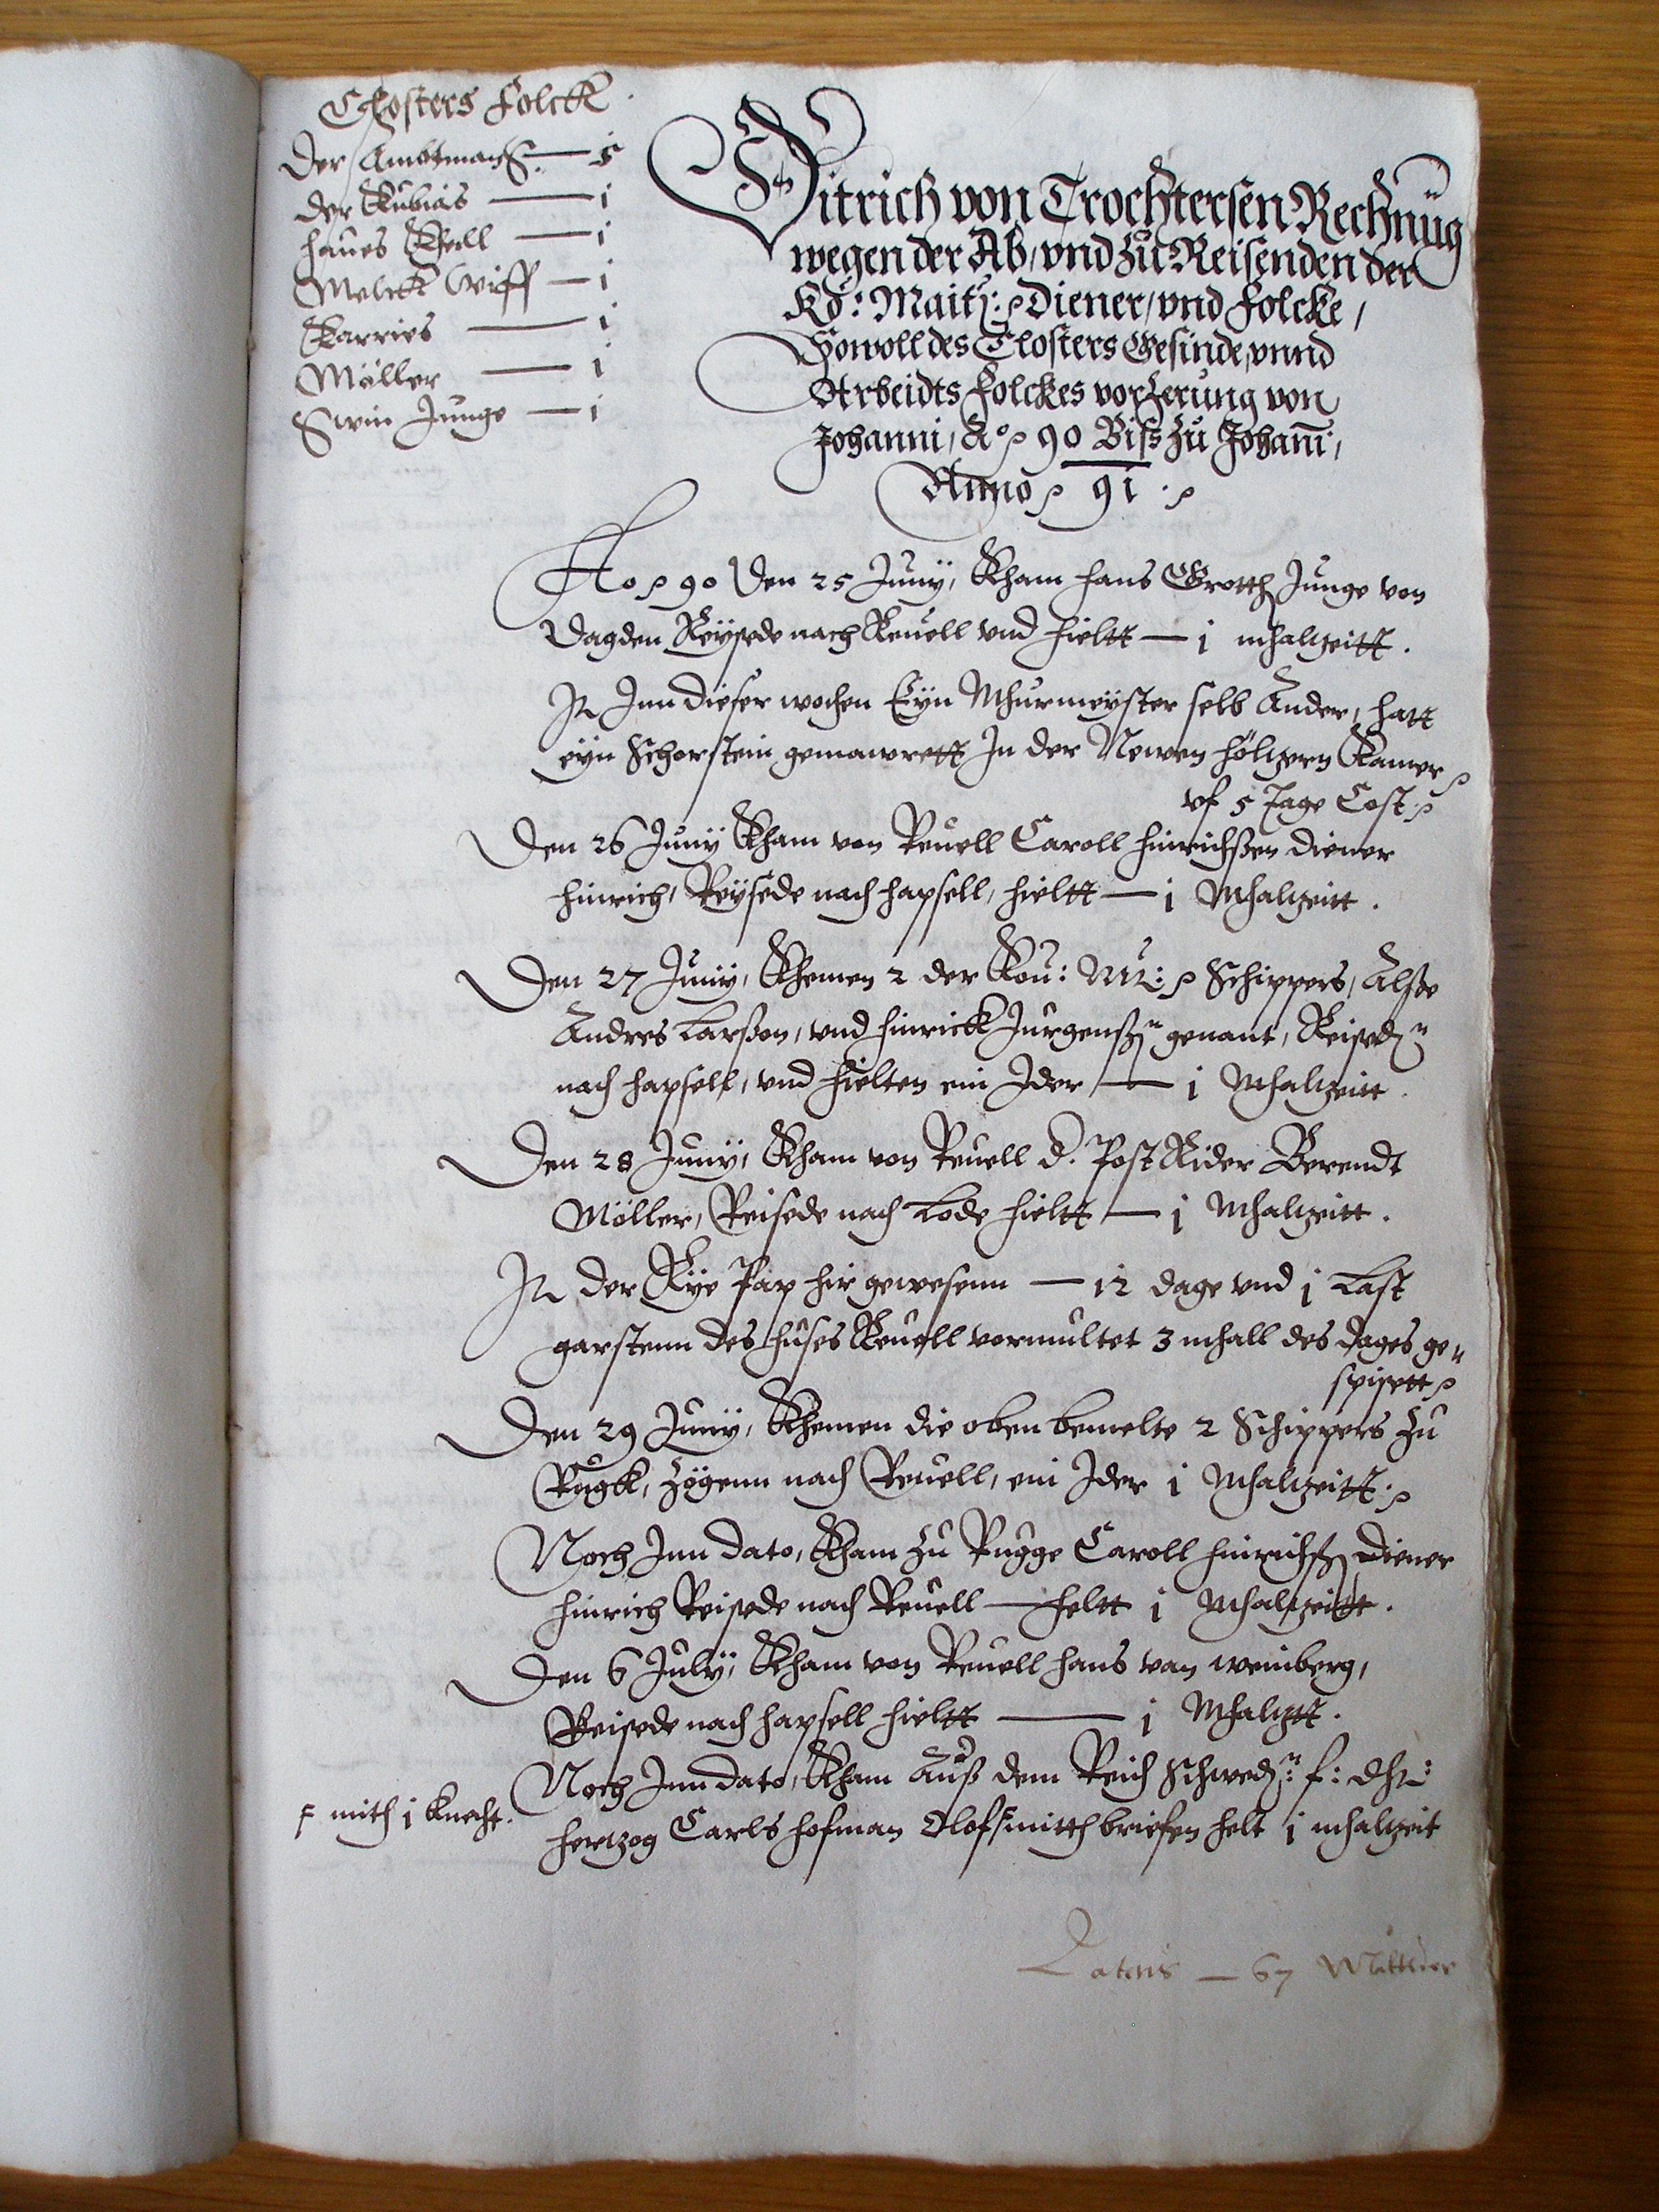 Closters Folck
Der Ambtman — 5
der Kubias — 1
haues Kerll — 1
Melck Wiff — 1
Karries — 1
Möller — 1
Swin Junge — 1
Ditrich von Trochtersen Rechnūg
wegen der Ab, vnd zu Reisenden der
Kö: Maitt: Diener, vnd Folcke,
Sowoll des Closters Gesinde, vnnd
Arbeidts Folckes vorzerung von
Johanni, Ao 90 Biss zu Johan̄i,
Anno 91.
Ao 90 Den 25 Juny, Kham Hans Grotth Junge von
Dagden Reysede nach Reuell vnd hieltt — 1 mhalzeitt.
Jt Inn dieser wochen Eyn Mhurmeyster selb Ander, hatt
eyn Schorstein gemawrett In der Newen höltzern Kamer
vf 5 Tage Cost.
Den 26 Juny Kham von Reuell Caroll Hinrichssen Diener
Hinrich, Reysede nach Hapsell, hieltt — 1 Mhalzeitt.
Den 27 Juny, Khemen 2 der Kou: Mt: Schippers, Alsse
Andres Larsson, vnd Hinrick Jurgenssn genant, Reisedn
nach Hapsell, vnd hielten ein Jder — 1 Mhalzeitt
Den 28 Juny, Kham von Reuell d. Post Rider Berendt
Möller, Reisede nach Lode hieltt — 1 Mhalzeitt.
Jt der Rye Pap hir gewesenn — 12 dage vnd 1 Last
garstenn des huses Reuell vermultet 3 mhall des dages ge„
spisett
Den 29 Juny, Khemen die oben bemelte 2 Schippers zu
Rugk, zögenn nach Reuell, ein Jder 1 Mhalzeitt.
Noch Inn dato, Kham zu Rugge Caroll Hinrichss Diener
Hinrich Reisede nach Reuell — heltt 1 Mhalzeitt.
Den 6 July, Kham von Reuell Hans van Weinberg,
Reisede nach Hapsell hieltt — 1 Mhalztt.
Noch Inn dato, Kham Auss dem Reich Schwedn: f: dht:
Hertzog Carls Hofman Olof mitth briefen helt 1 mhalzeit
mith 1 Knecht.
Lateris — 67